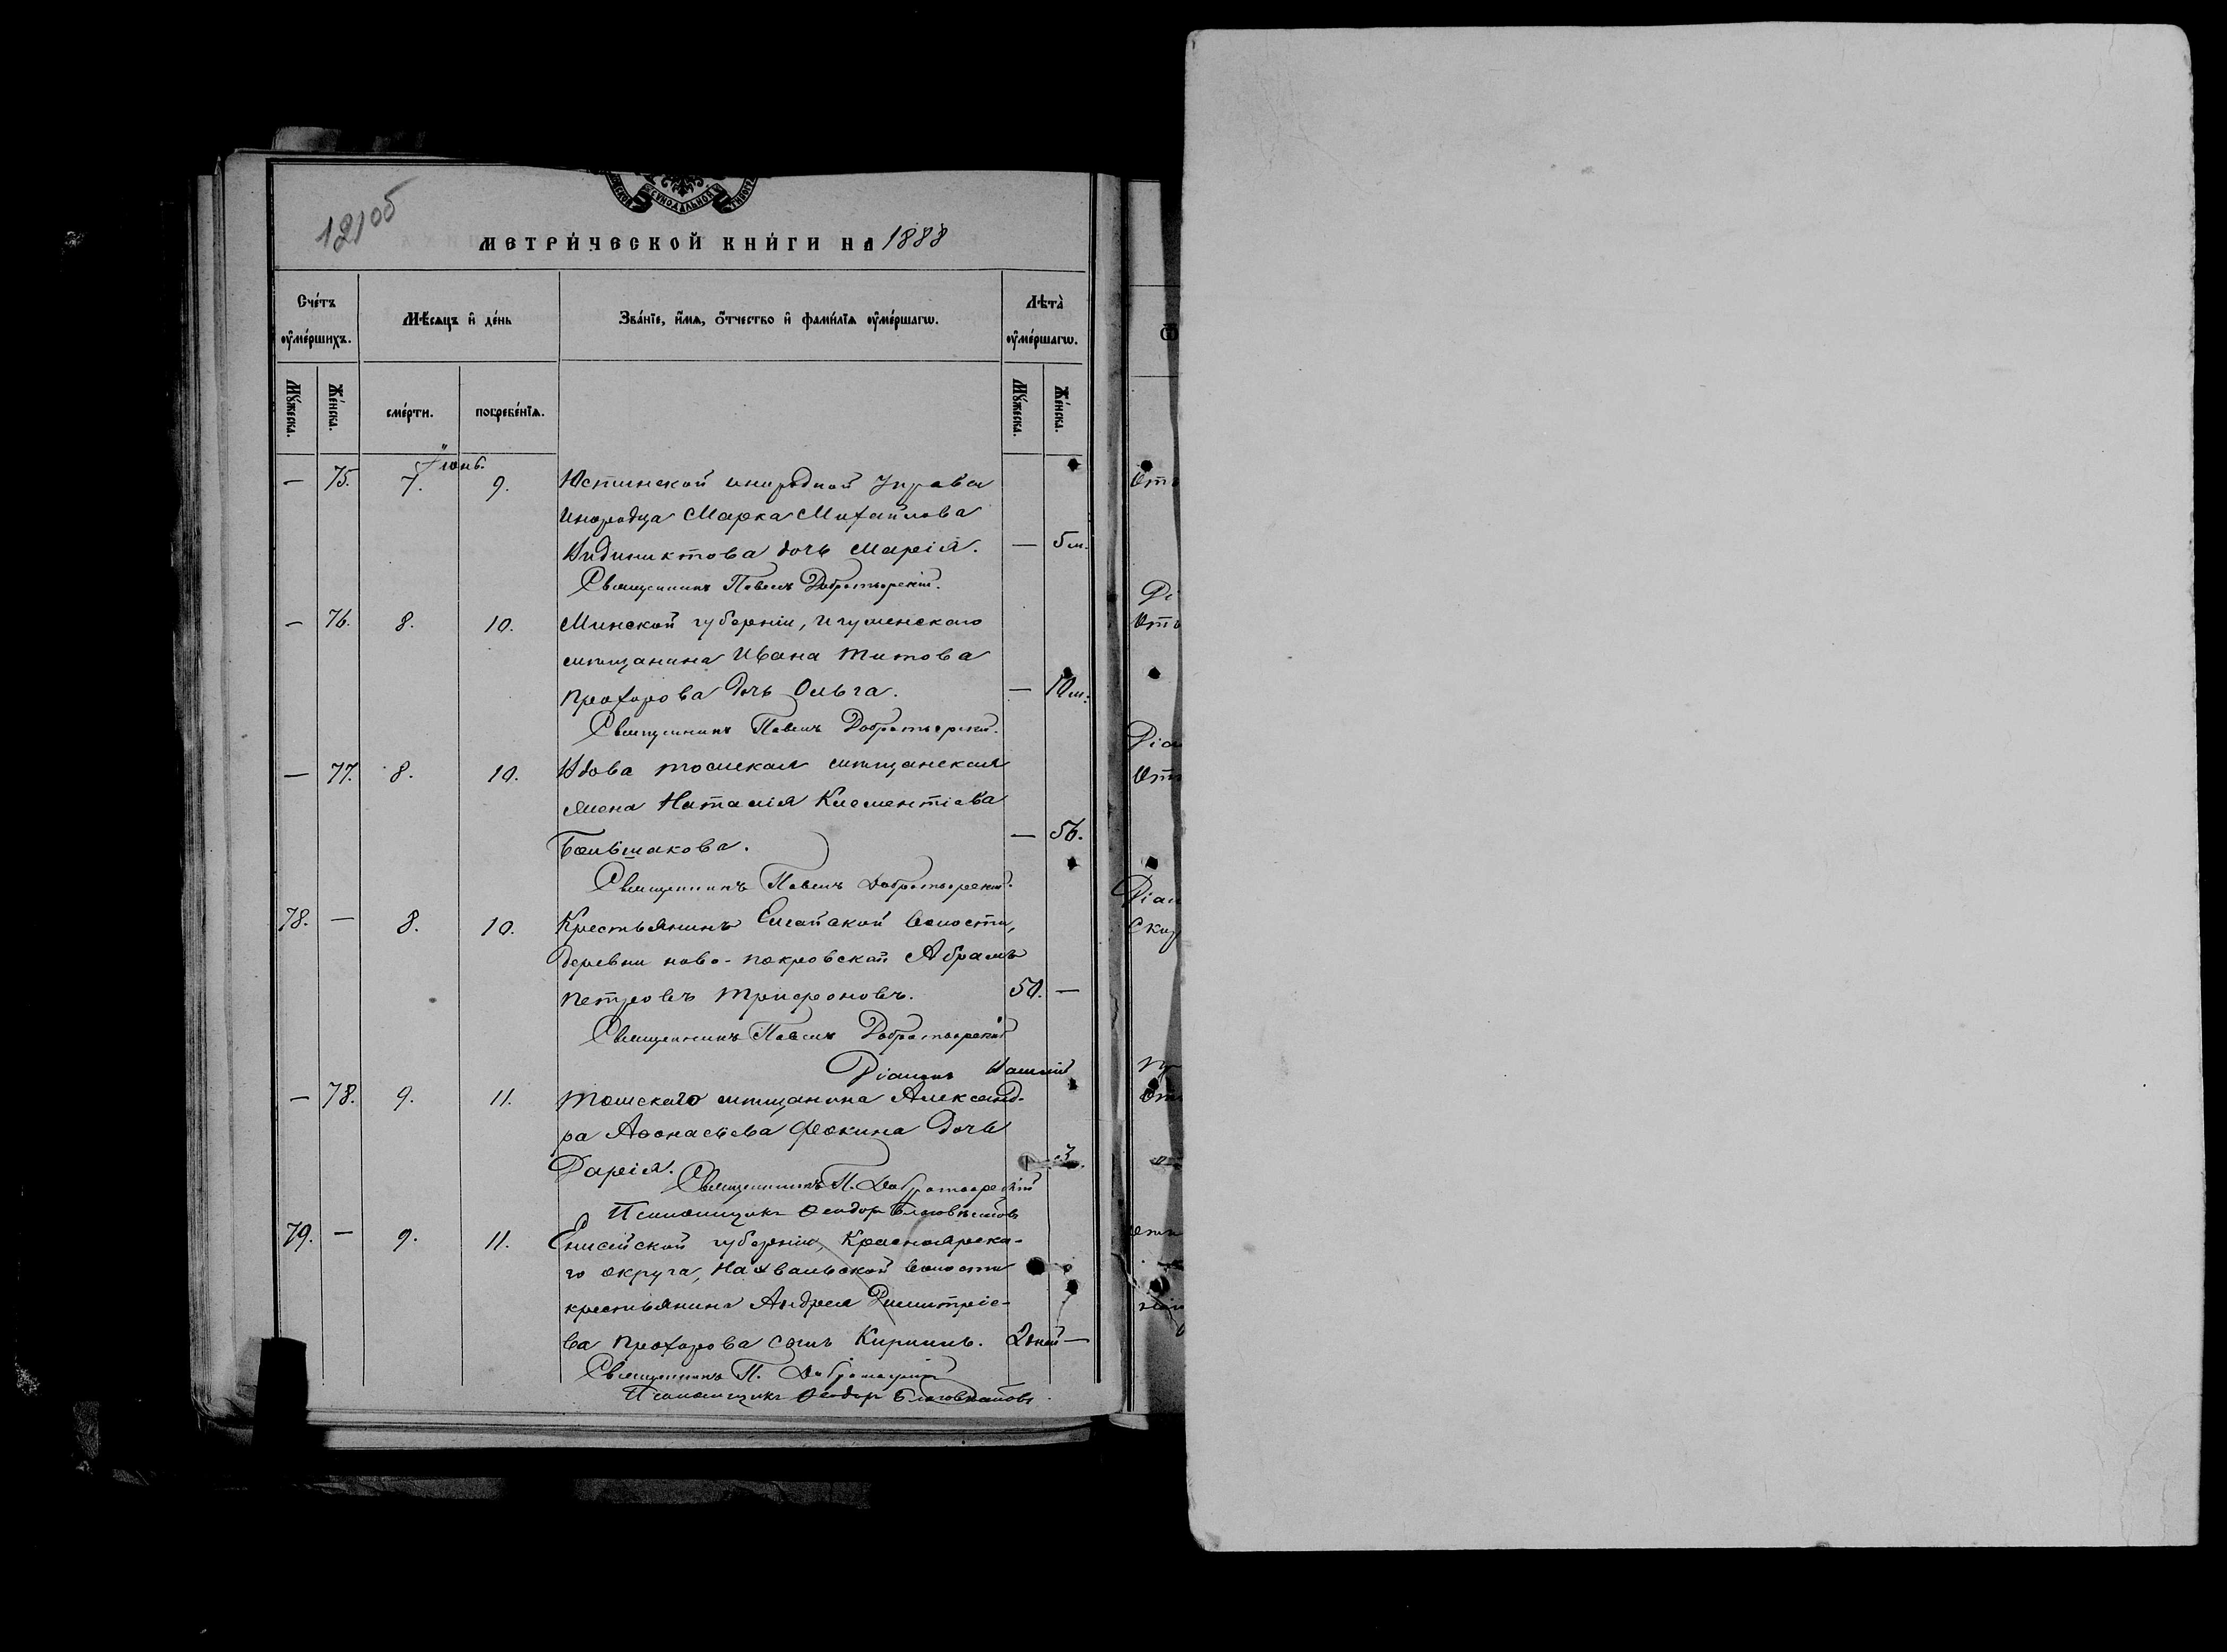 121об
СѴНОДАЛЬНОЙ
МЕТРИ́ЧЕСКОЙ КНИ́ГИ НА 1888
Сче́тъ ᲂу҆ме́ршихъ.
Мѣ́сяцъ и҆ де́нь
Зва́нїе, и҆́мѧ, ѻ҆́тчество и҆ фами́лїѧ ᲂу҆ме́ршагѡ.
Лѣта̀ ᲂу҆ме́ршагѡ.
Мꙋ́жеска.
Же́нска.
сме́рти.
погребе́нїѧ.
Мꙋ́жеска.
Же́нска.
Іюнь.
— 75. 7. 9. инородной Управы
Инородца Марка Михайлова
дочь Марія. — 5 м.
Священникъ Павелъ Добротворскій.
— 76. 8. 10. Минской губерніи, Игуменскаго
мѣщанина Ивана Титова
Прохорова дочь Ольга. — 10 м.
Священникъ Павелъ Добротворскій.
— 77. 8. 10. Вдова томская мѣщанская
жена Наталія Клементіева
Большакова. — 56.
Священникъ Павелъ Добротворскій.
78. — 8. 10. Крестьянинъ Елгайской волости,
деревни ново-покровской Абрамъ
Петровъ Трифоновъ. 50. —
Священникъ Павелъ Добротворскій
Діаконъ
— 78. 9. 11. Томскаго мѣщанина Александ-
ра Аѳонасьева Фокина дочь
Дарія. 3.
Священникъ П. Добротворскій
Псаломщикъ Ѳеодоръ Благовѣстовъ
79. — 9. 11. Енисейской губерніи, Красноярска-
го округа, Нахвальской волости
крестьянина Андрея Димитріе-
ва Прохорова сынъ Кириллъ. 2 дней —
Священникъ П. Добротворскій
Псаломщикъ Ѳеодоръ Благовѣстовъ.